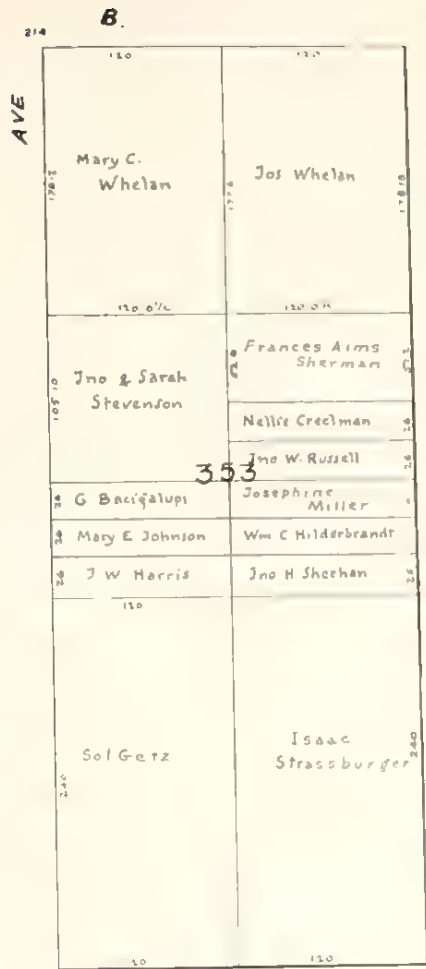 214
B.
AVE
120
120
Mary C.
Whelan
Jos Whelan
120.0½
Jno & Sarah
Stevenson
105.10
Frances Aims
Sherman
Nellie Creelman
26
Jno W. Russell
26
353
26
G Bacigalupi
Josephine
Miller
26
Mary E Johnson
Wm C Hilderbrandt
26
J W Harris
Jno H Sheehan
120
Sol Getz
Isaac
Strassburger
240
240
120